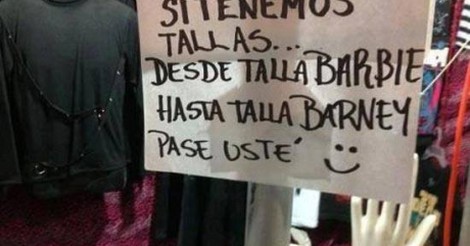 SI TENEMOS
TALLAS...
DESDE TALLA BARBIE
HASTA TALLA BARNEY
PASE USTE´